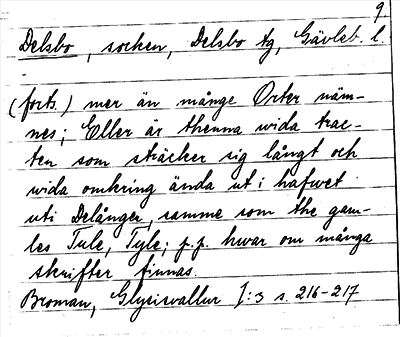 9.
Delsbo, socken, Delsbo tg, Gävleb. l.
(forts.) mer än månge Orter näm-
nes; Eller är thenna wida trac-
ten som sträcker sig långt och
wida omkring ända ut i hafwet
uti Delånger, samme som the gam-
les Tule, Tyle; p.p. hwar om många
skrifter finnas.
Broman, Glysisvallur I:3 s. 216-217